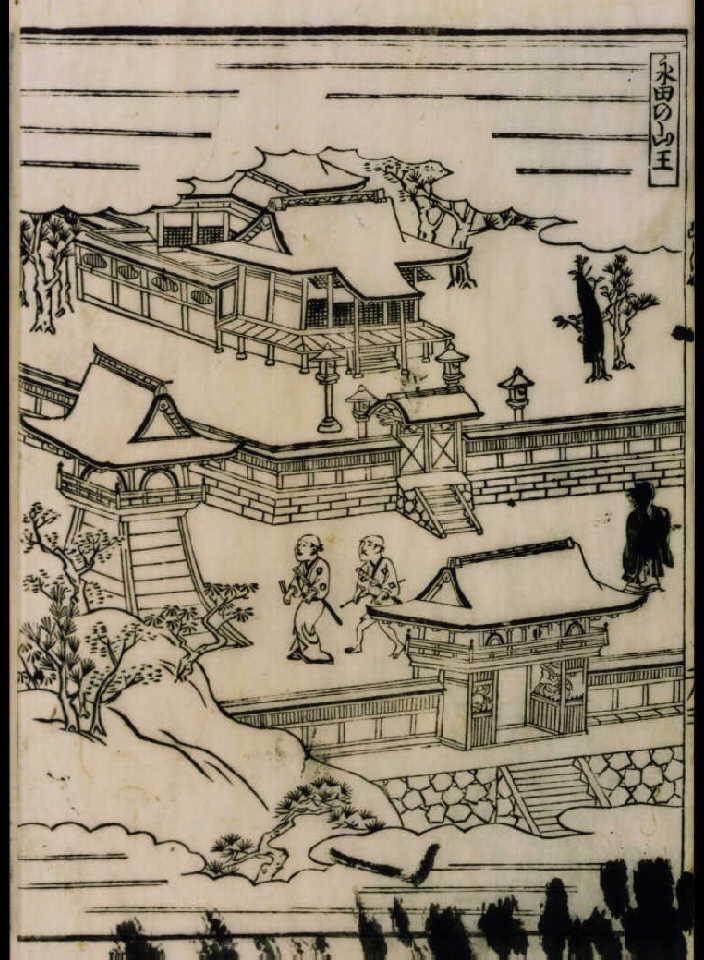 永田の山王